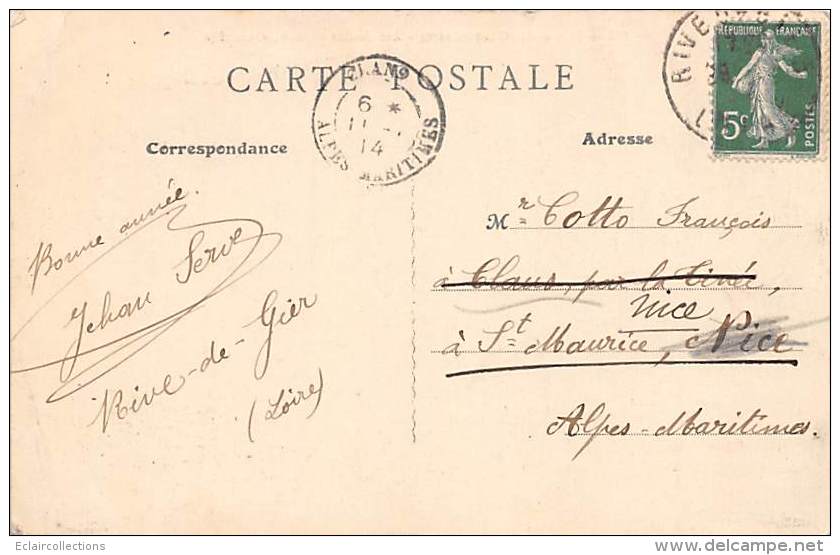 CARTE POSTALE
Correspondance
Adresse
RÉPUBLIQUE FRANÇAISE
5c
POSTES
RIVE
6 *
11
14
ALPES MARITIMES
Bonne année.
Jehan Serve
Rive-de-Gier
(Loire)
Mr Cotto François
à Clans, par la Tinée,
Nice
à St Maurice, Nice
Alpes-Maritimes.
Eclaircollections
delcampe.net